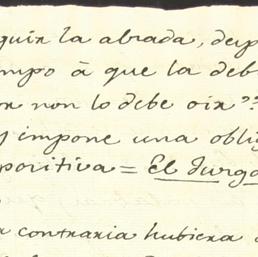 quir la abrada, desp
empo à que la deb
or non lo debe oir??
y impone una oblig
positiva = El Jurga
a contraria hubiera